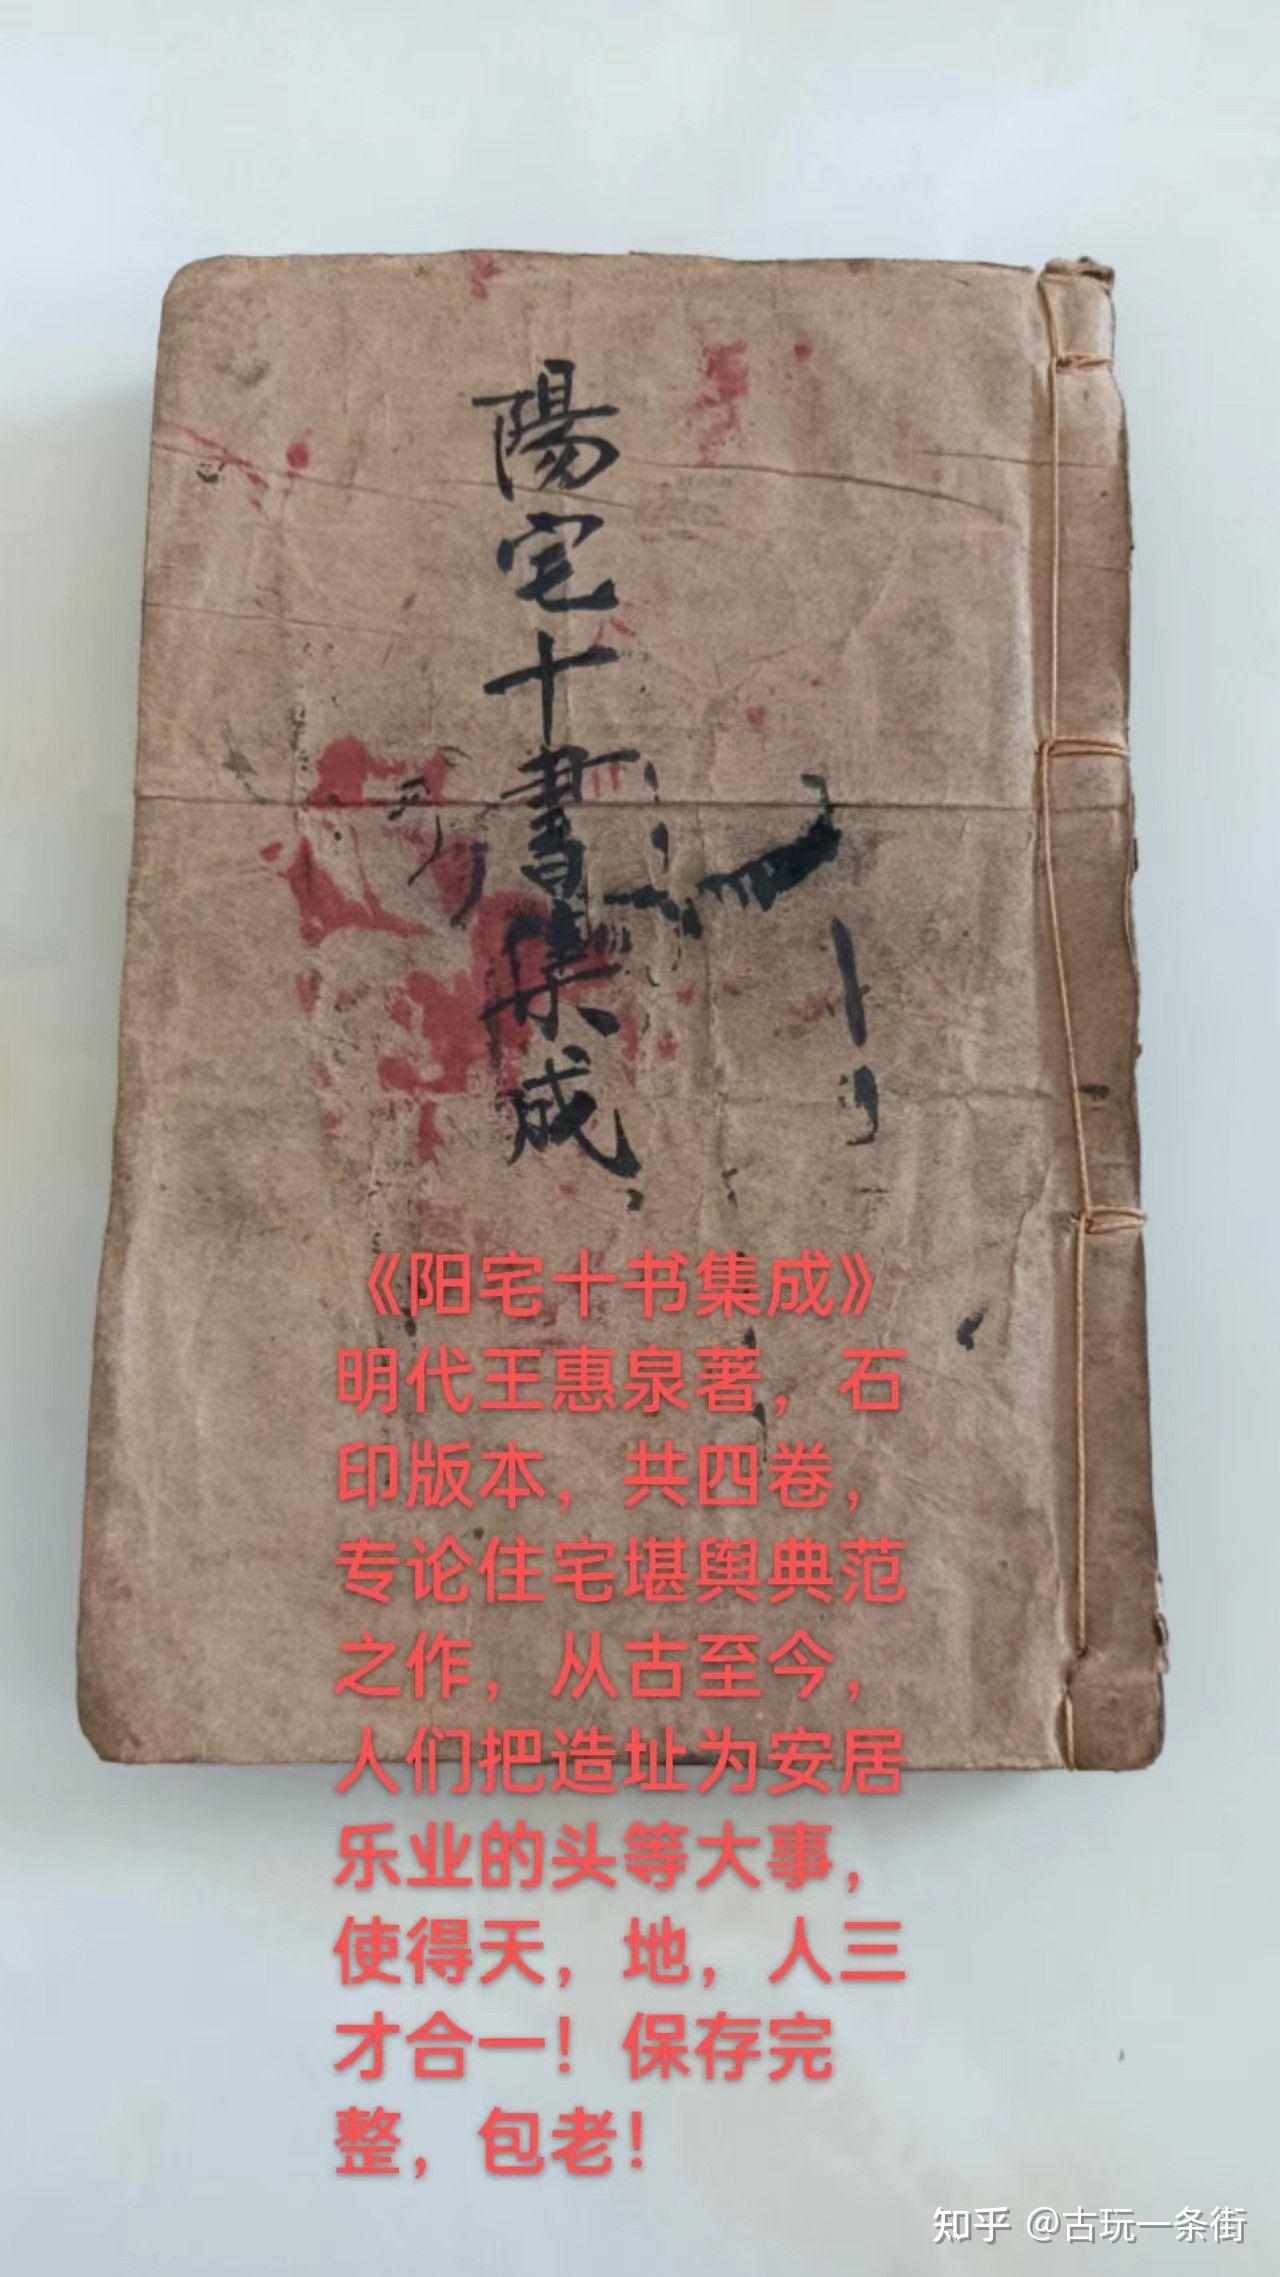 陽宅十書集成
《阳宅十书集成》
明代王惠泉著，石
印版本，共四卷，
专论住宅堪舆典范
之作，从古至今，
人们把造址为安居
乐业的头等大事，
使得天，地，人三
才合一！保存完
整，包老！
知乎 @古玩一条街